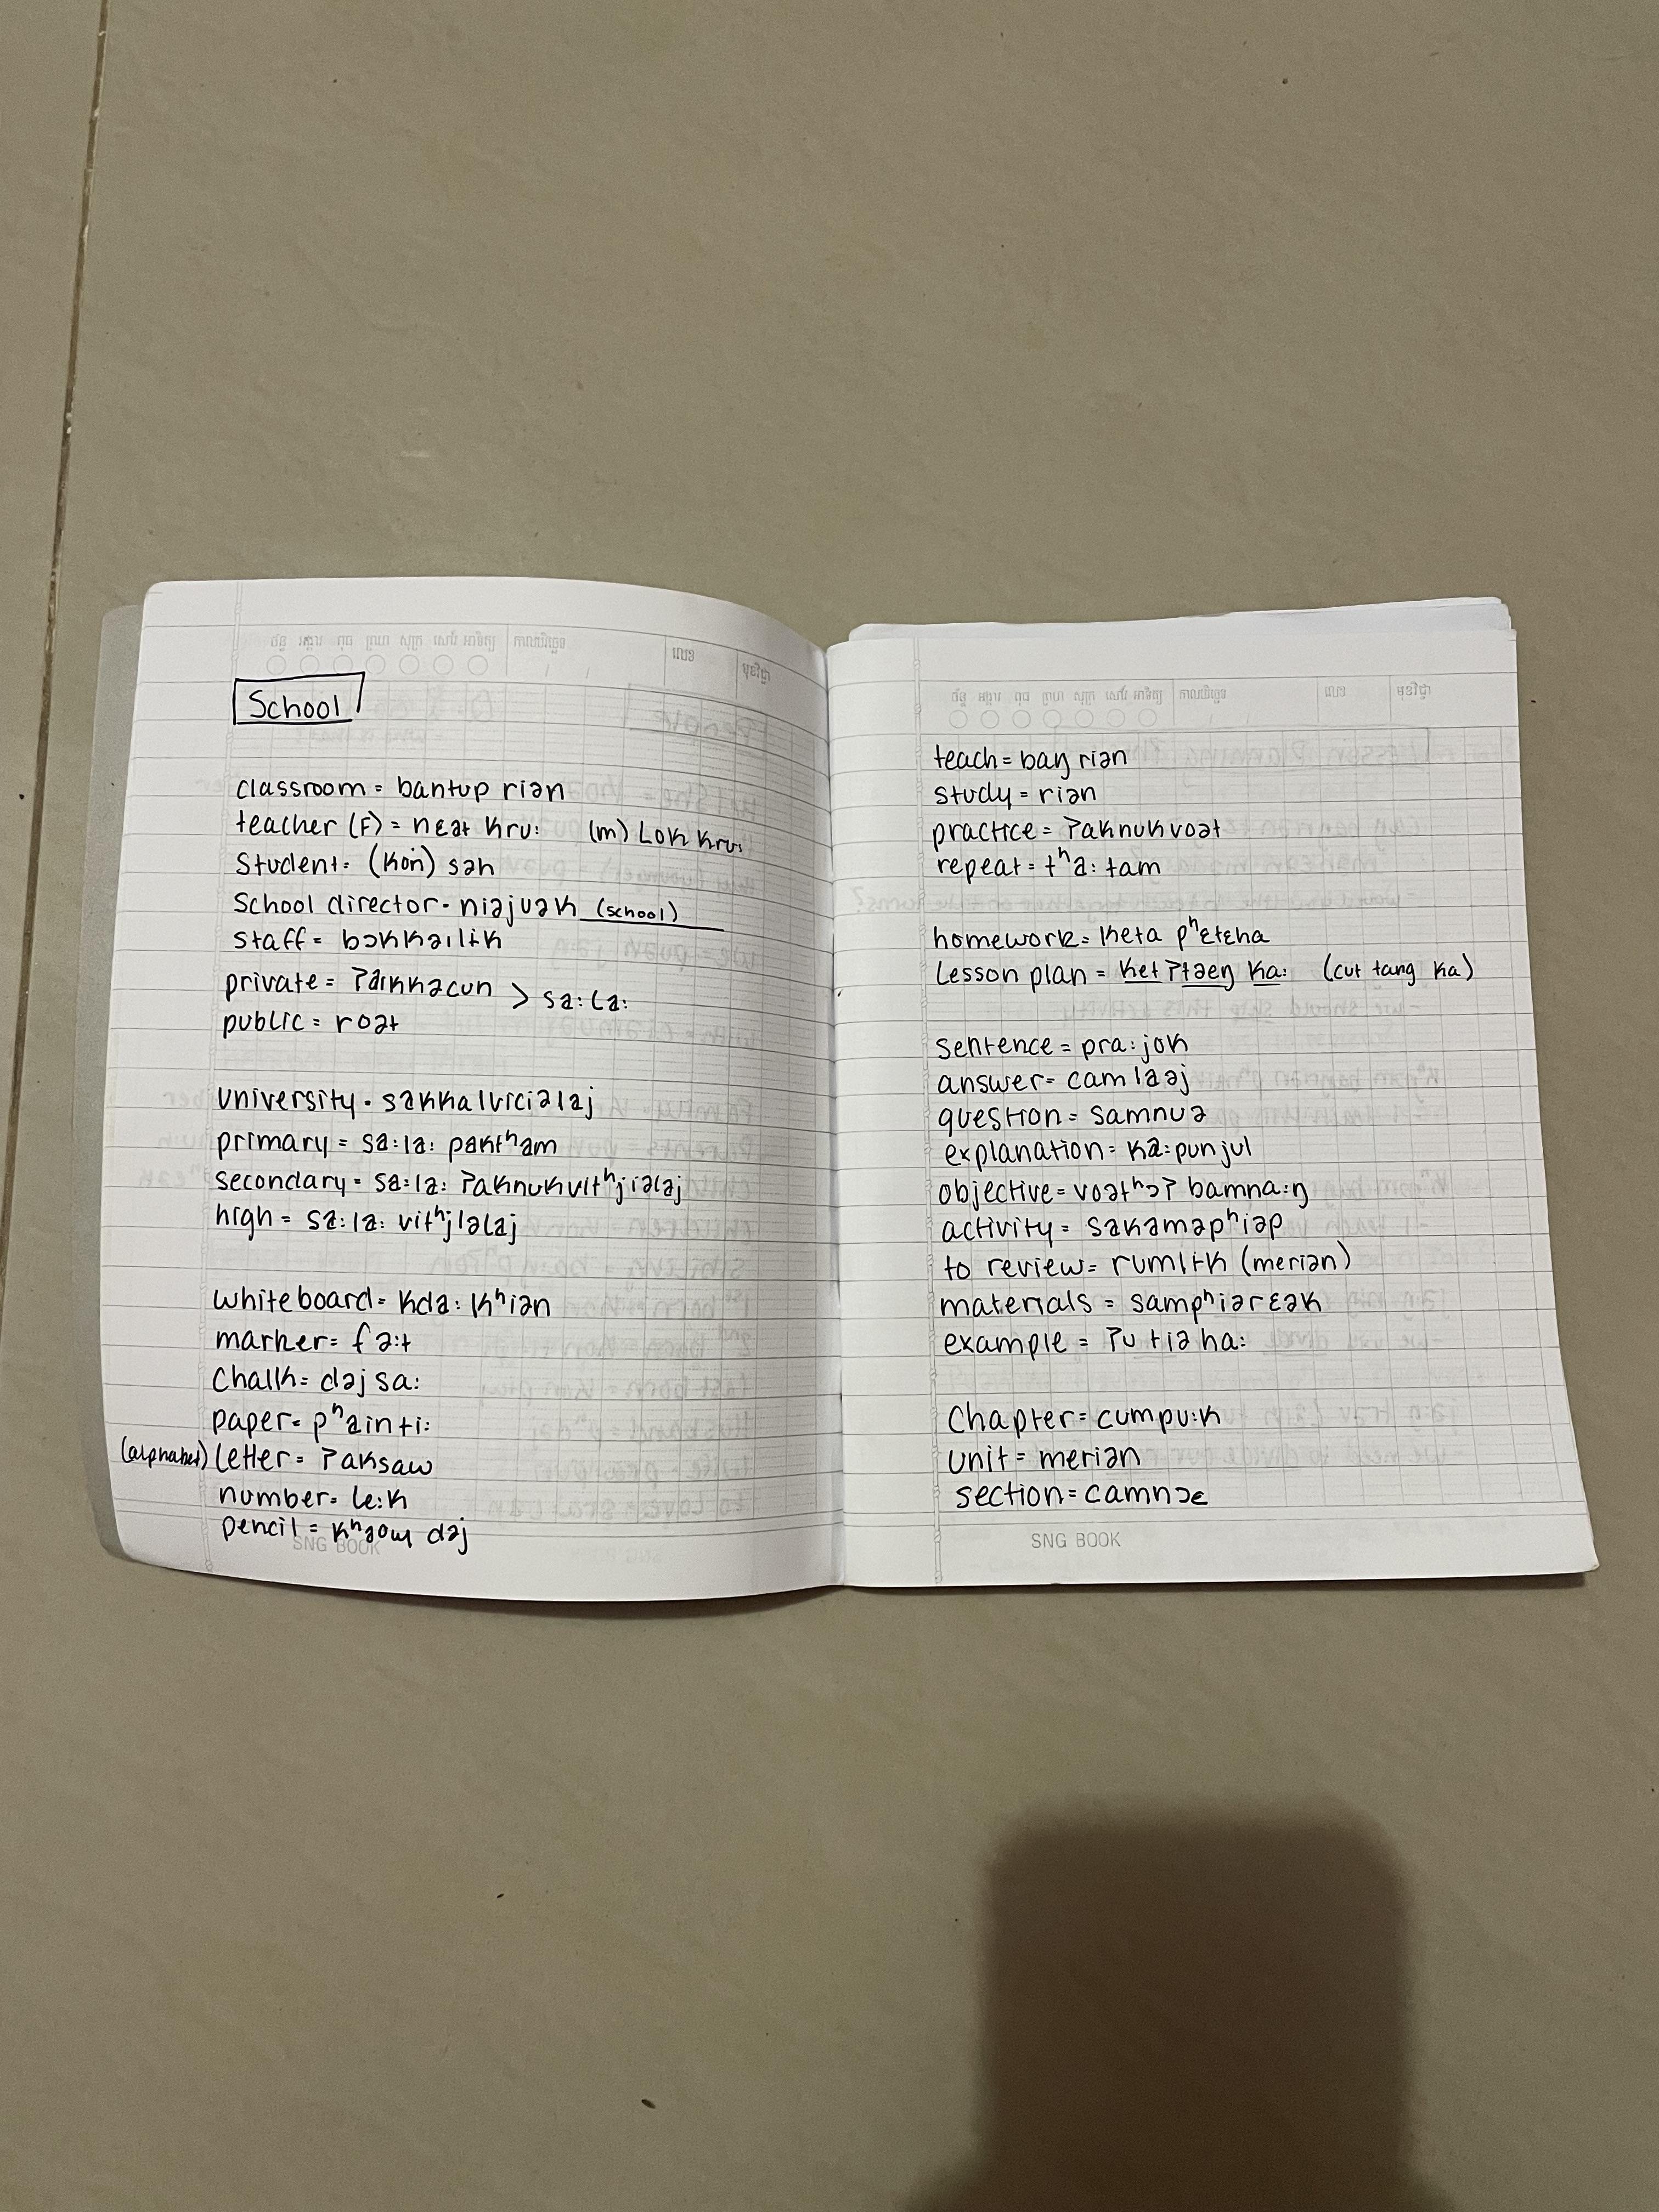 ច័ន្ទ អង្គារ ពុធ ព្រហ សុក្រ សៅរ៍ អាទិត្យ កាលបរិច្ឆេទ លេខ មុខវិជ្ជា
School
classroom = bantup riən
teacher (F) = nɛət kru: (m) Lok kru:
Student = (kon) səh
School director = niəjuək (school)
staff = bɔkkəlɨk
private = ʔaɪkkəcun > sa:la:
public = roət
university = sakkalviciəlaj
primary = sa:la: paktʰam
secondary = sa:la: ʔaknukvitʰjiəlaj
high = sa:la: vitʰjiəlaj
whiteboard = kda: kʰiən
marker = fə:t
Chalk = dəj sa:
paper = pʰain ti:
(alphabet) letter = ʔaksaw
number = le:k
pencil = kʰɡow dəj
SNG BOOK
ច័ន្ទ អង្គារ ពុធ ព្រហ សុក្រ សៅរ៍ អាទិត្យ កាលបរិច្ឆេទ លេខ មុខវិជ្ជា
teach = baŋ riən
study = riən
practice = ʔaknukvoət
repeat = tʰa: tam
homework = keta pʰɛtɛha
Lesson plan = ket ʔtaeŋ ka: (cut tang ka)
sentence = pra:jok
answer = camlaəj
question = samnuə
explanation = ka:punjul
objective = voətʰɔʔ bamna:ŋ
activity = sakaməpʰiəp
to review = rumlɨk (meriən)
materials = sampʰiərɛək
example = ʔutiəha:
Chapter = cumpu:k
unit = meriən
section = camnɔɛ
SNG BOOK